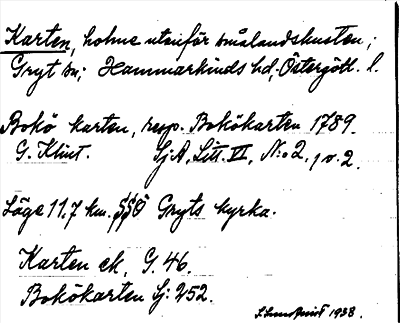 Karten, holme utanför smålandskusten;
Gryt sn; Hammarkinds hd; Östergötl. l.
Bokö karten, resp. Bokökarten 1789.
G. Klint. SjA, Litt. VI, N:o 2, 1 o. 2.
Läge 11.7 km. SSÖ Gryts kyrka.
Karten ek. G. 46.
Bokökarten Sj: 252.
1938.